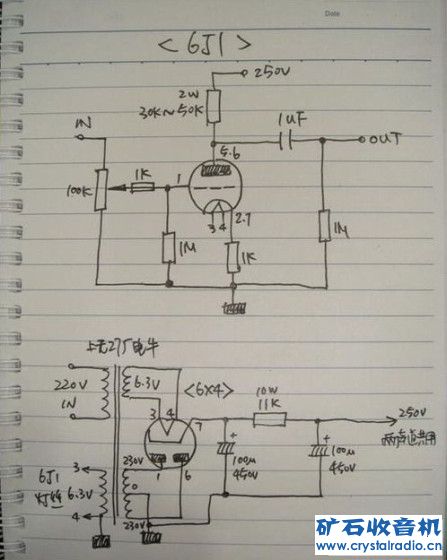 Date
<6J1>
250V
2W
30K~50K
IN
1UF
OUT
5.6
100K
1K
1
2.7
3 4
1M
1K
1M
上无27厂电牛
220V
IN
6.3V
<6X4>
3 4
7
10W
11K
250V
两声道共用
+
100μ
450V
+
100μ
450V
230V
1
6
0
230V
6J1
灯丝
3
6.3V
4
矿石收音机
www.crystalradio.cn